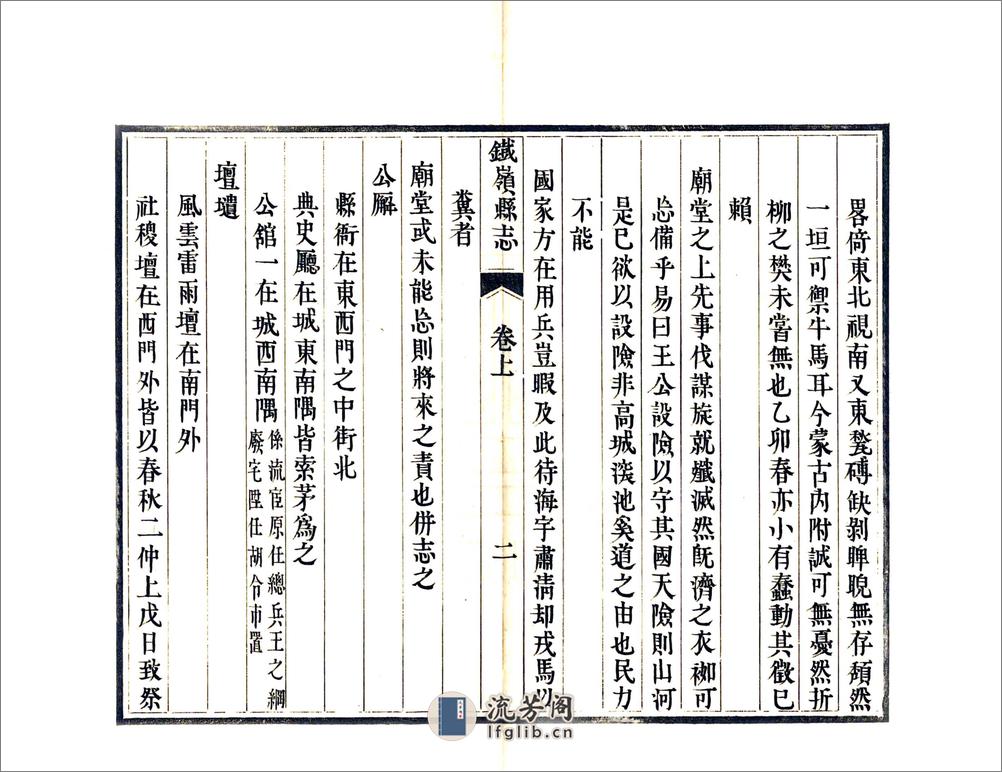 畧倚東北視南又東甃磚缺剝睥睨無存頹然
一垣可禦牛馬耳今蒙古內附誠可無憂然折
柳之樊未嘗無也乙卯春亦小有蠢動其徵已
賴
廟堂之上先事伐謀旋就殲滅然旣濟之衣袽可
忘備乎易曰王公設險以守其國天險則山河
是已欲以設險非高城深池奚道之由也民力
不能
國家方在用兵豈暇及此待海宇肅清却戎馬以
鐵嶺縣志
卷上
二
糞者
廟堂或未能忘則將來之責也併志之
公廨
縣衙在東西門之中街北
典史廳在城東南隅皆索茅爲之
公舘一在城西南隅
係流宦原任總兵王之綱
廢宅陞任胡令市置
壇壝
風雲雷雨壇在南門外
社稷壇在西門外皆以春秋二仲上戊日致祭
流芳阁
lfglib.cn